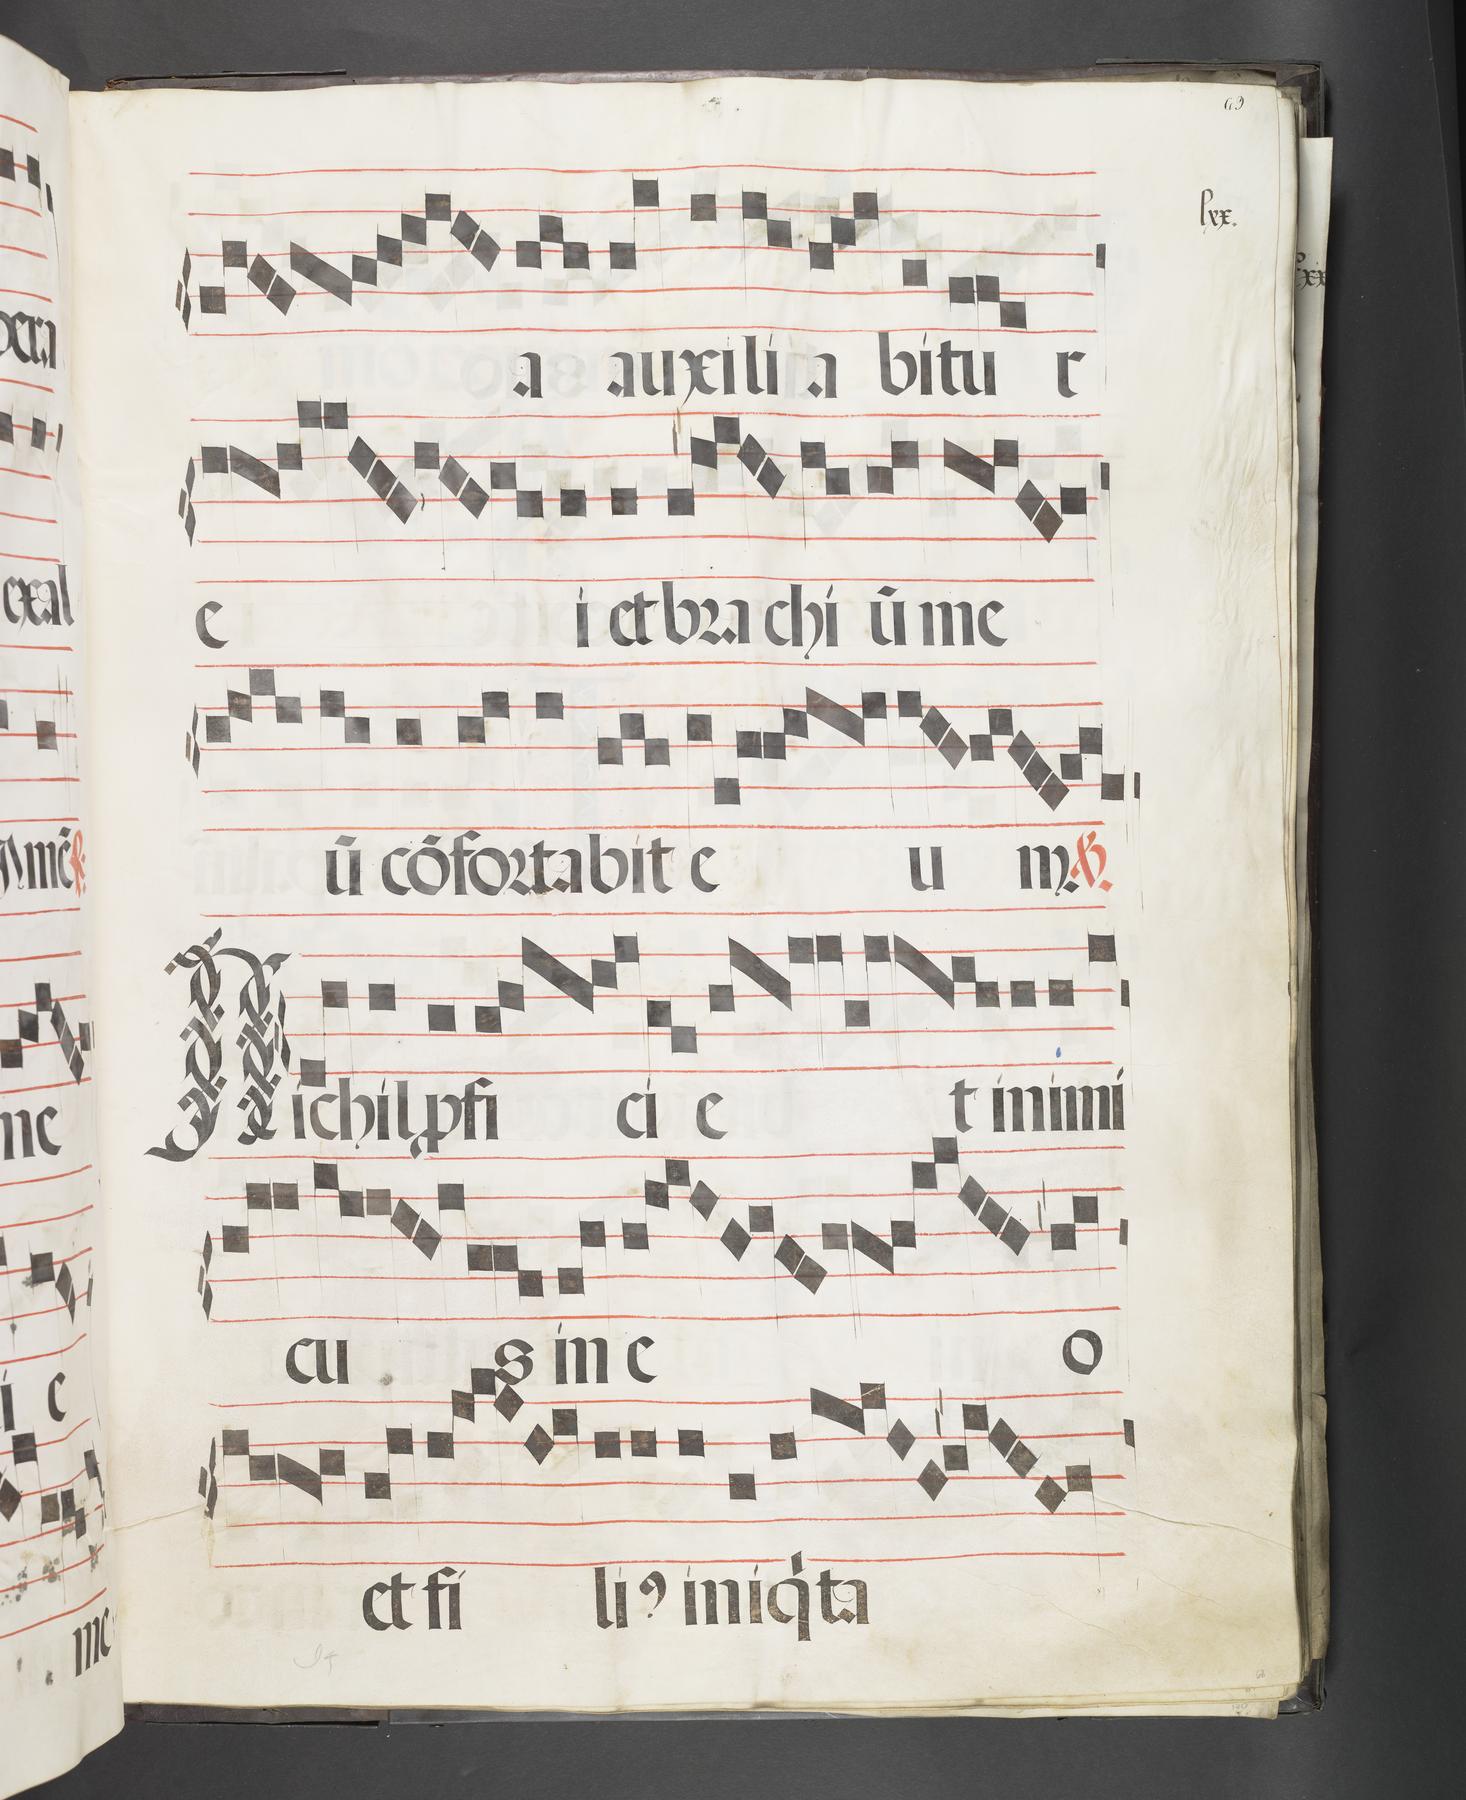 69
lxx.
a auxilia bitu r
e i et bra chi ū me
ū cōfortabit e u m ℣.
Nichil ꝓfi ci e t inimi
cu s in e o
et fi liꝰ iniq̇ta